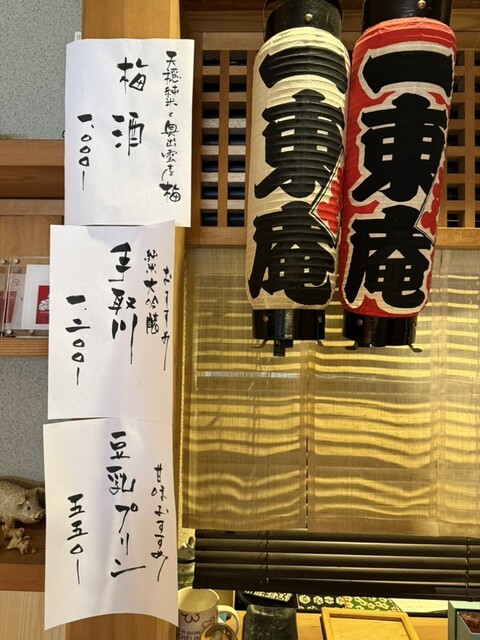 天穏純米と奥出雲産梅
梅酒
一、〇〇〇ー
おすすめ
純米大吟醸
手取川
一、二〇〇ー
甘味おすすめ
豆乳プリン
五五〇ー
一東庵
一東庵